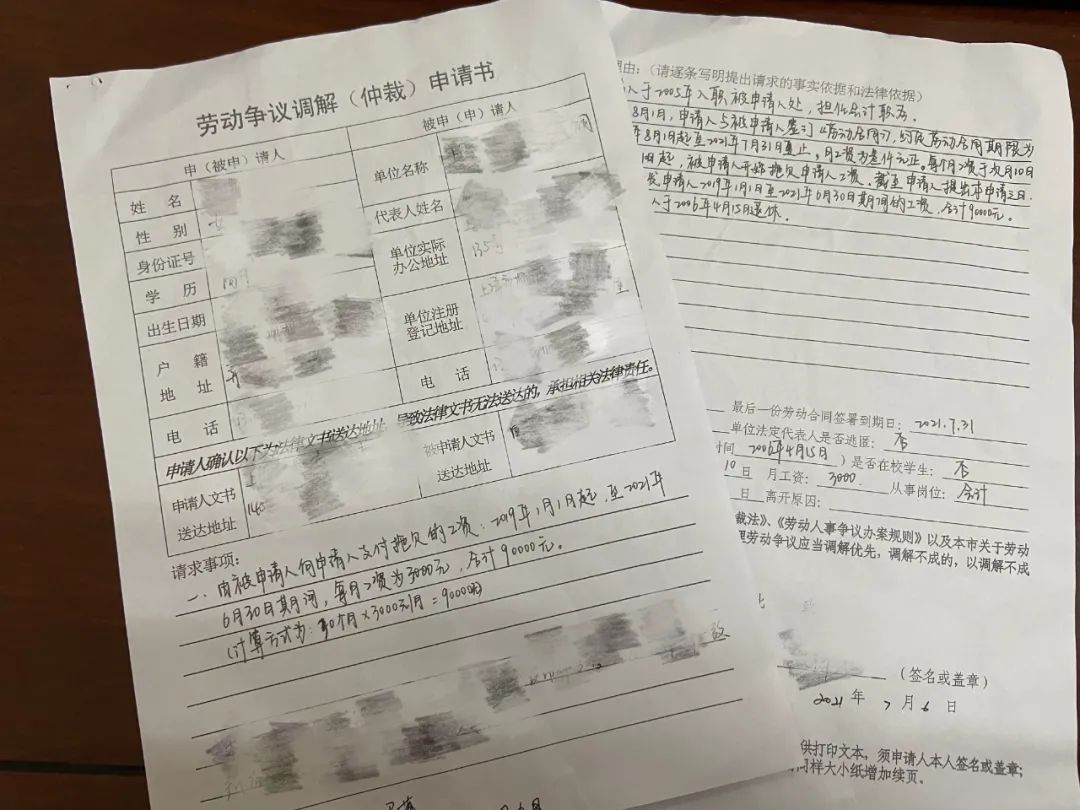 劳动争议调解（仲裁）申请书
申（被申）请人
被申（申）请人
姓 名
单位名称
性 别
女
代表人姓名
身份证号
单位实际
办公地址
学 历
出生日期
单位注册
登记地址
户 籍
地 址
电 话
电 话
申请人确认以下为法律文书送达地址，导致法律文书无法送达的，承担相关法律责任。
申请人文书
送达地址
被申请人文书
送达地址
请求事项：
一、由被申请人向申请人支付拖欠的工资：2019年1月1日起，至2021年
6月30日期间，每月工资为3000元，合计90000元。
（计算方式为：30个月×3000元/月＝90000元
理由：（请逐条写明提出请求的事实依据和法律依据）
人于2005年入职被申请人处，担任会计职务。
8月1日，申请人与被申请人签订《劳动合同》，约定劳动合同期限为
年8月1日起至2021年7月31日止，月工资为叁仟元正，每个月工资于次月10日
1日起，被申请人开始拖欠申请人工资，截至申请人提出本申请之日，
欠申请人2019年1月1日至2021年6月30日期间的工资，合计90000元。
人于2006年4月15日退休．
最后一份劳动合同签署到期日：2021.7.31
单位法定代表人是否逃匿：否
时间 2006年4月15日 ）是否在校学生：否
10 日 月工资：3000. 从事岗位：会计
日 离开原因：
裁法》、《劳动人事争议办案规则》以及本市关于劳动
理劳动争议应当调解优先，调解不成的，以调解不成
（签名或盖章）
2021 年 7 月 6 日
供打印文本，须申请人本人签名或盖章；
同样大小纸增加续页。